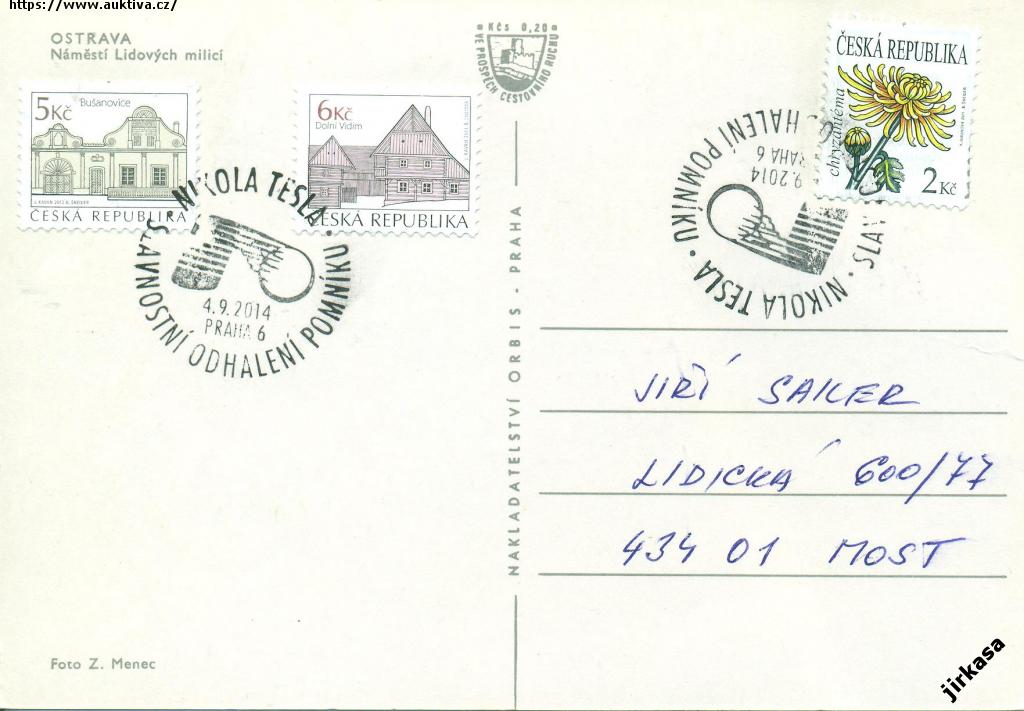 https://www.auktiva.cz/
OSTRAVA
Náměstí Lidových milicí
Kčs 0,20
VE PROSPĚCH CESTOVNÍHO RUCHU
5Kč
Bušanovice
ČESKÁ REPUBLIKA
6Kč
Dolní Vidim
ČESKÁ REPUBLIKA
ČESKÁ REPUBLIKA
chryzantéma
2 Kč
NIKOLA TESLA
SLAVNOSTNÍ ODHALENÍ POMNÍKU
4.9.2014
PRAHA 6
NIKOLA TESLA
SLAV
HALENÍ POMNÍKU
9.2014
PRAHA 6
NAKLADATELSTVÍ ORBIS - PRAHA
JIŘÍ SAILER
LIDICKÁ 600/77
434 01 MOST
Foto Z. Menec
jirkasa